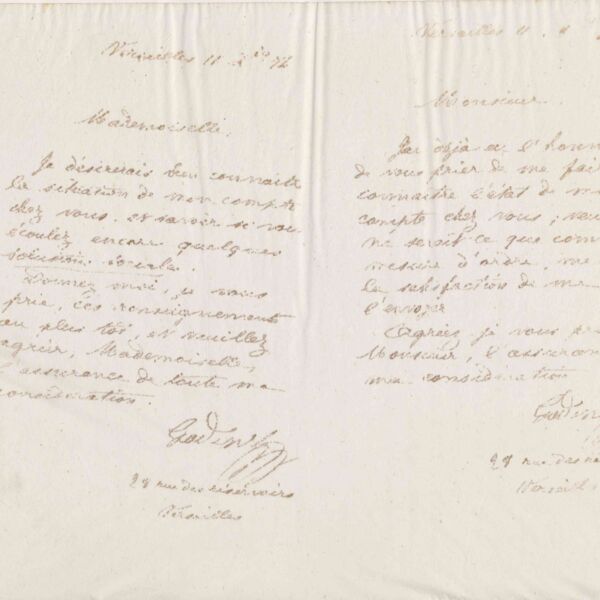 Versailles 11 Xbre 72
Mademoiselle,
Je désirerais bien connaitre
la situation de mon compte
chez vous, et savoir si vous
écoulez encore quelques
solution sociale.
Donnez moi, je vous
prie, ces renseignements
au plus tôt, et veuillez
agréer, Mademoiselle,
l'assurance de toute ma
considération.
Godin
28 rue des réservoirs
Versailles
Versailles 11
Monsieur,
J'ai déjà eu l'honn
de vous prier de me fair
connaitre l'état de m
compte chez vous; veu
ne serait-ce que com
mesure d'ordre, me
la satisfaction de me
l'envoyer
Agréez je vous pr
Monsieur, l'assuran
ma considération
Godin
28 rue des ré
Versaill